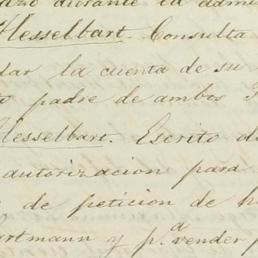 durante la adm
Hesselbart. Consulta
dar la cuenta de su
padre de ambos
Hesselbart. Escrito d
autorizacion para
de peticion de h
artmann y p.ª vender